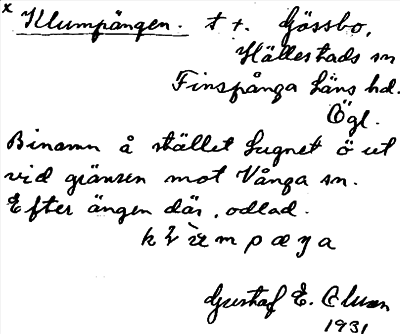 x Klumpängen. t +. Gössbo,
Hällestads sn
Finspånga läns hd.
Ögl.
Binamn å stället Lugnet ö ut
vid gränsen mot Vånga sn.
Efter ängen där, odlad.
Gustaf E.
1931